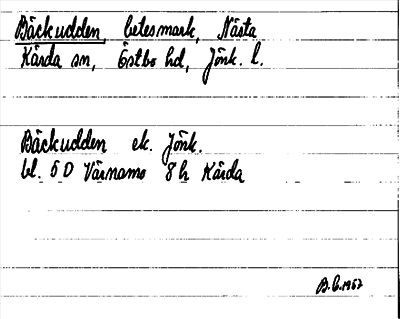 Bäckudden, betesmark, Nästa
Kärda sn, Östbo hd, Jönk. l.
Bäckudden ek. Jönk.
bl. 5D Värnamo 8h Kärda
B.C.1957